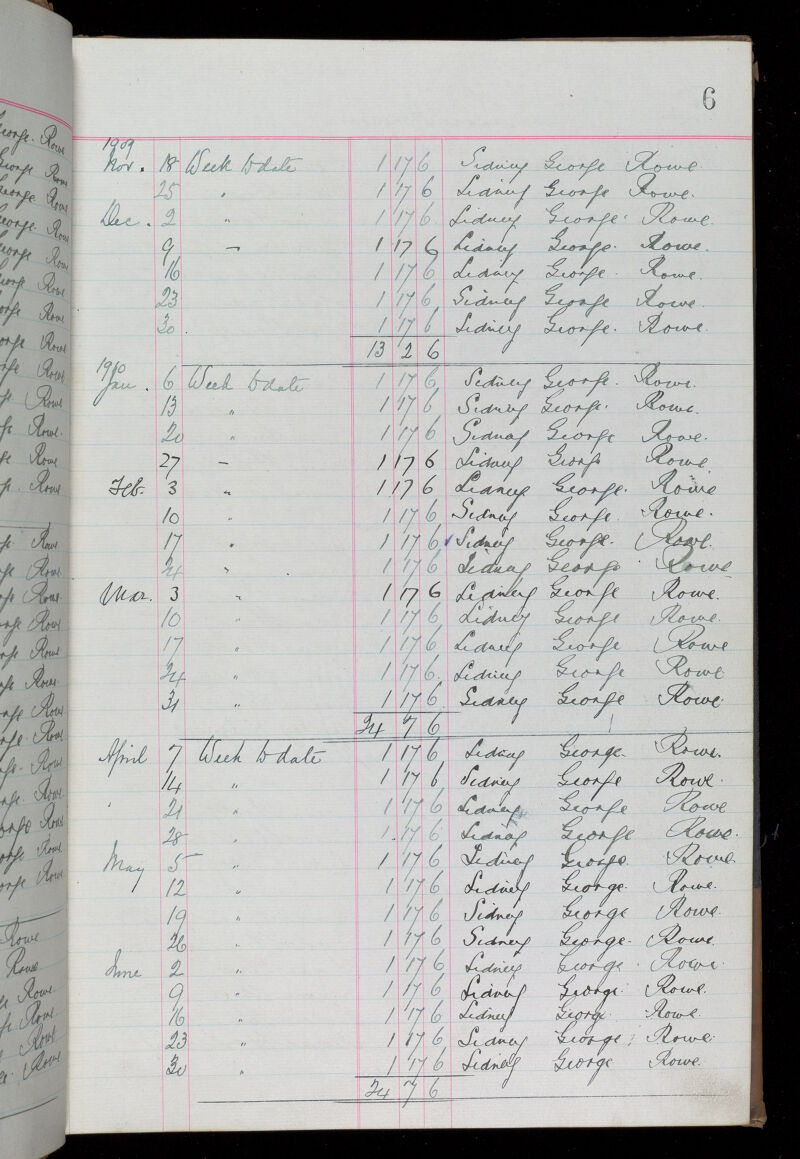 6
1909
Nov. 18 Week to date 1 17 6 Sidney George Rowe
25 " 1 17 6 Sidney George Rowe.
Dec. 2 " 1 17 6 Sidney George Rowe.
9 " 1 17 6 Sidney George. Rowe.
16 1 17 6 Sidney George. Rowe.
23 1 17 6 Sidney George Rowe.
30 1 17 6 Sidney George. Rowe.
13 2 6
1910
Jan. 6 Week to date 1 17 6 Sidney George. Rowe.
13 " 1 17 6 Sidney George. Rowe.
20 " 1 17 6 Sidney George Rowe.
27 " 1 17 6 Sidney George Rowe.
Feb. 3 " 1 17 6 Sidney George. Rowe
10 " 1 17 6 Sidney George. Rowe.
17 " 1 17 6 Sidney George. Rowe.
24 " 1 17 6 Sidney George. Rowe
Mar. 3 " 1 17 6 Sidney George Rowe.
10 " 1 17 6 Sidney George Rowe.
17 " 1 17 6 Sidney George Rowe
24 " 1 17 6 Sidney George Rowe
31 " 1 17 6 Sidney George Rowe
24 7 6
April 7 Week to date 1 17 6 Sidney George. Rowe.
14 " 1 17 6 Sidney George Rowe.
21 " 1 17 6 Sidney George Rowe
28 " 1 17 6 Sidney George Rowe.
May 5 " 1 17 6 Sidney George. Rowe.
12 " 1 17 6 Sidney George. Rowe.
19 " 1 17 6 Sidney George Rowe.
26 " 1 17 6 Sidney George. Rowe.
June 2 " 1 17 6 Sidney George. Rowe.
9 " 1 17 6 Sidney George. Rowe.
16 " 1 17 6 Sidney George Rowe.
23 " 1 17 6 Sidney George. Rowe.
30 " 1 17 6 Sidney George Rowe.
24 7 6